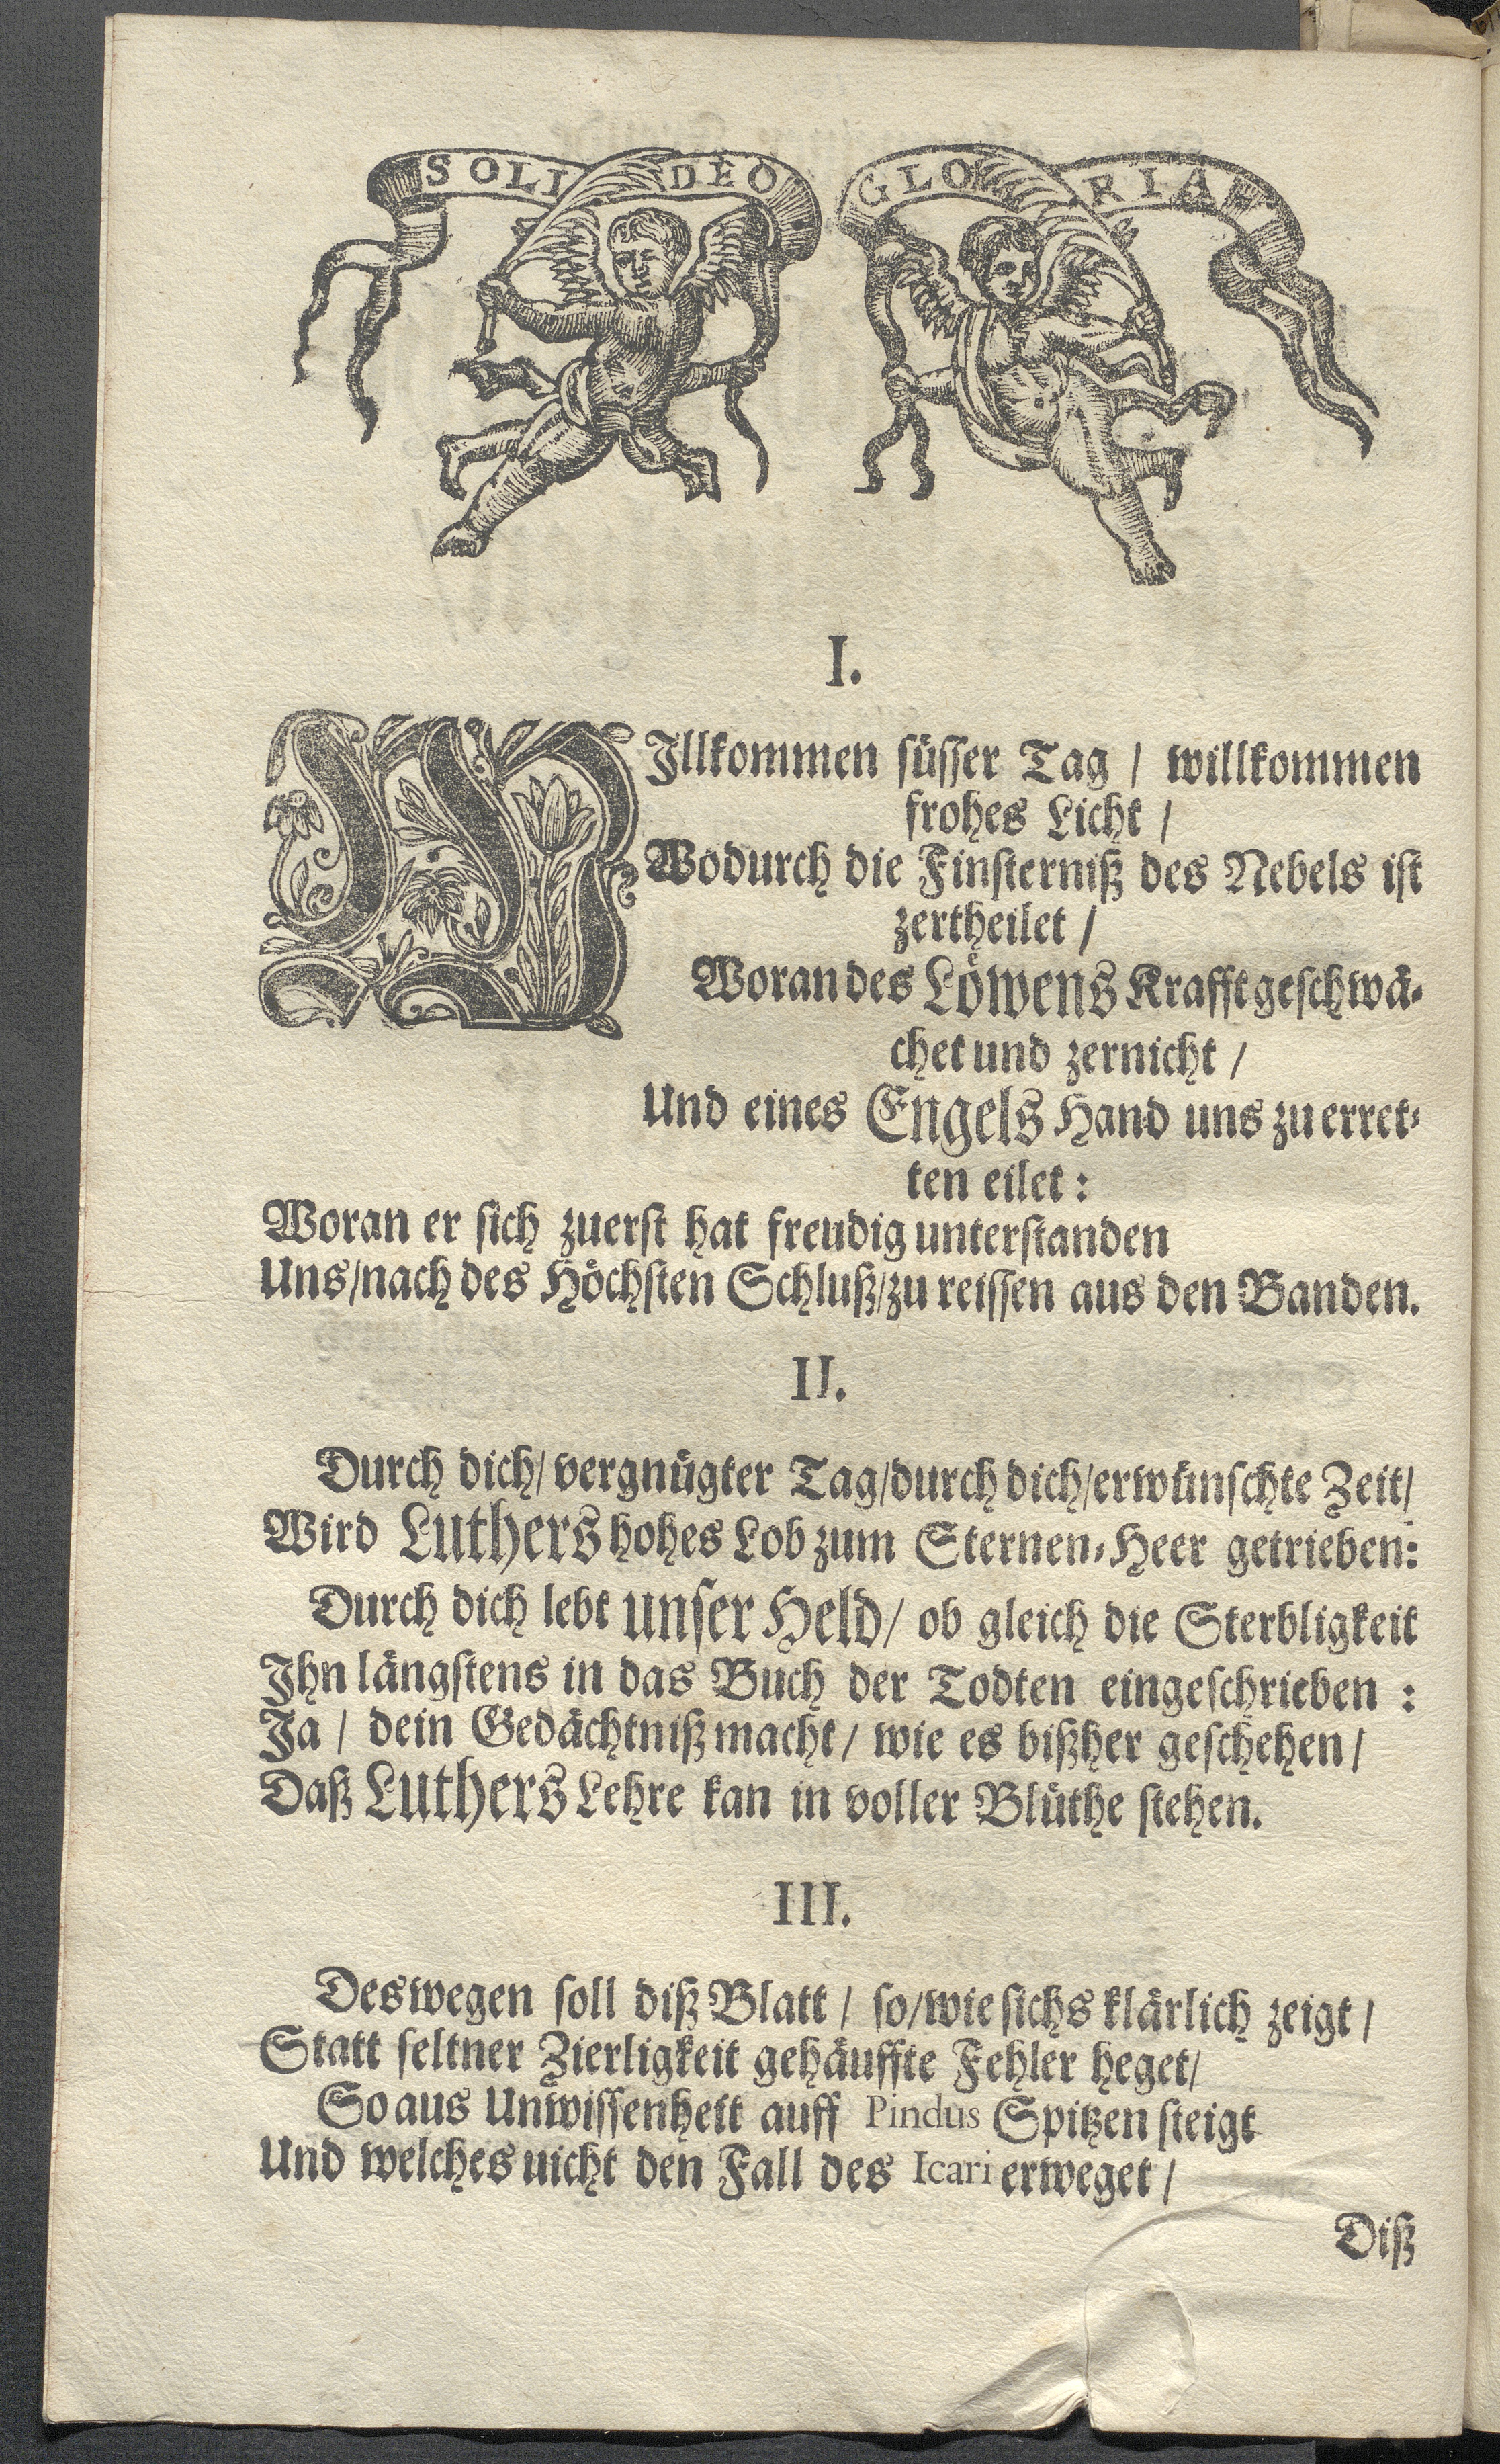 SOLI DEO GLORIA
I.
WIllkommen süsser Tag / willkommen
frohes Licht /
Wodurch die Finsterniß des Nebels ist
zertheilet /
Woran des Löwens Krafft geschwä-
chet und zernicht /
Und eines Engels Hand uns zu erret-
ten eilet:
Woran er sich zuerst hat freudig unterstanden
Uns/nach des Höchsten Schluß/zu reissen aus den Banden.
II.
Durch dich/ vergnügter Tag/durch dich/erwünschte Zeit/
Wird Luthers hohes Lob zum Sternen-Heer getrieben:
Durch dich lebt unser Held/ ob gleich die Sterbligkeit
Ihn längstens in das Buch der Todten eingeschrieben :
Ja / dein Gedächtniß macht/ wie es bißher geschehen/
Daß Luthers Lehre kan in voller Blüthe stehen.
III.
Deswegen soll diß Blatt / so/wie sichs klärlich zeigt /
Statt seltner Zierligkeit gehäuffte Fehler heget/
So aus Unwissenheit auff Pindus Spitzen steigt
Und welches uicht den Fall des Icari erweget /
Diß